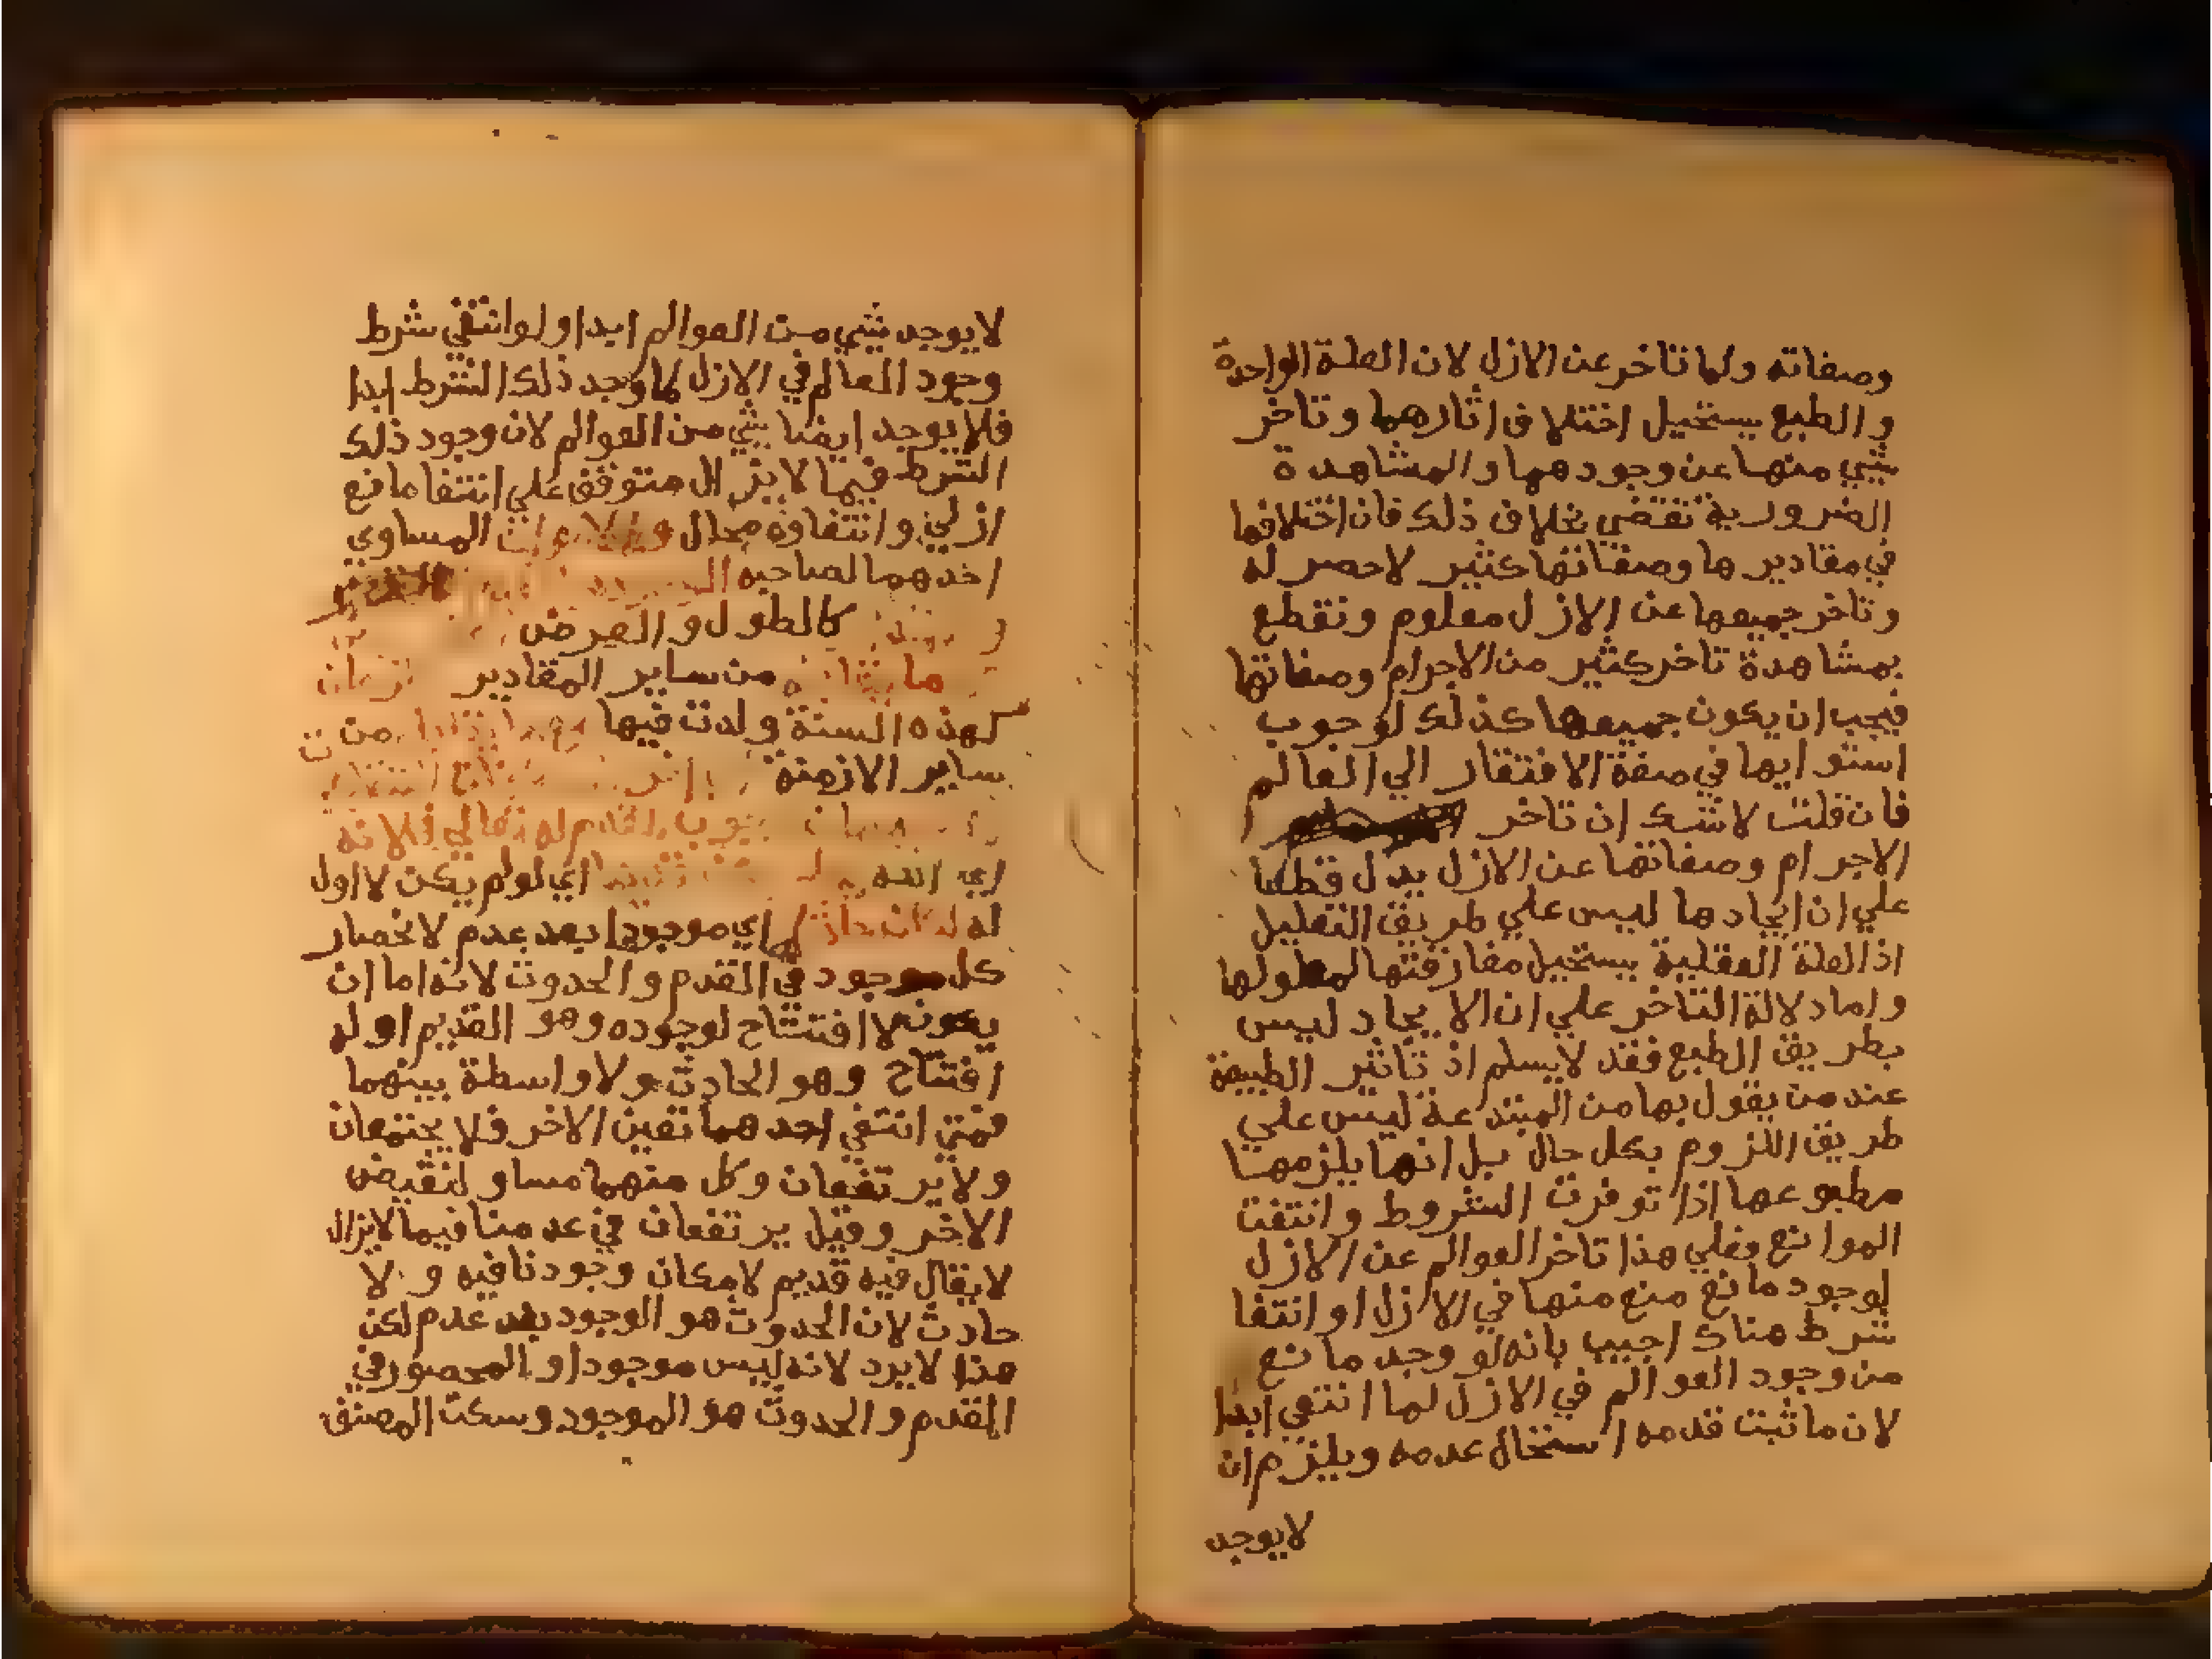 وصفاته ولما تاخر عن الازل لان العلة الواحدة
والطبع يستحيل اختلاف اثارهما وتاخر
شي منها عن وجودهما والمشاهدة
الضرورية تقضي بخلاف ذلك فان اختلافها
في مقاديرها وصفاتها كثير لاحصر له
وتاخر جميعها عن الازل معلوم ونقطع
بمشاهدة تاخر كثير من الاجرام وصفاتها
فيجب ان يكون جميعها كذلك لوجوب
استوايها في صفة الافتقار الي العالم
فان قلت لاشك ان تاخر
الاجرام وصفاتها عن الازل يدل قطعا
علي ان ايجادها ليس علي طريق التعليل
اذ العلة العقلية يستحيل مفارقتها لمعلولها
واما دلالة التاخر علي ان الايجاد ليس
بطريق الطبع فقد لايسلم اذ تاثير الطبيعة
عند من يقول بها من المبتدعة ليس علي
طريق اللزوم بكل حال بل انها يلزمها
مطبوعها اذا توفرت الشروط وانتفت
الموانع فعلي هذا تاخر العوالم عن الازل
لوجود مانع منع منها في الازل او انتفا
شرط هناك اجيب بانه لو وجد مانع
من وجود العوالم في الازل لما انتفي ابدا
لان ماثبت قدمه استحال عدمه ويلزم ان
لايوجد
لايوجد شي من العوالم ابدا ولو انتفي شرط
وجود العالم في الازل لما وجد ذلك الشرط ابدا
فلا يوجد ايضا شي من العوالم لان وجود ذلك
الشرط فيما لايزال متوقف علي انتفا مانع
ازلي وانتفاوه محال المساوي
احدهما لصاحبه
كالطول والعرض
من ساير المقادير
لهذه السنة ولدت فيها من
ساير الازمنة
القدم له تعالي فلانه
اي لو لم يكن لا اول
له لكان اي موجودا بعد عدم لانحصار
كل موجود في القدم والحدوث لانه اما ان
يكون لا افتتاح لوجوده وهو القديم او له
افتتاح وهو الحادث ولا واسطة بينهما
فمتي انتفي احدهما تعين الاخر فلا يجتمعان
ولا يرتفعان وكل منهما مساو لنقيض
الاخر وقيل يرتفعان في عدمنا فيما لايزال
لايقال فيه قديم لامكان وجودنا فيه ولا
حادث لان الحدوث هو الوجود بعد عدم لكن
هذا لايرد لانه ليس موجودا والمحصور في
القدم والحدوث هو الموجود وسكت المصنف